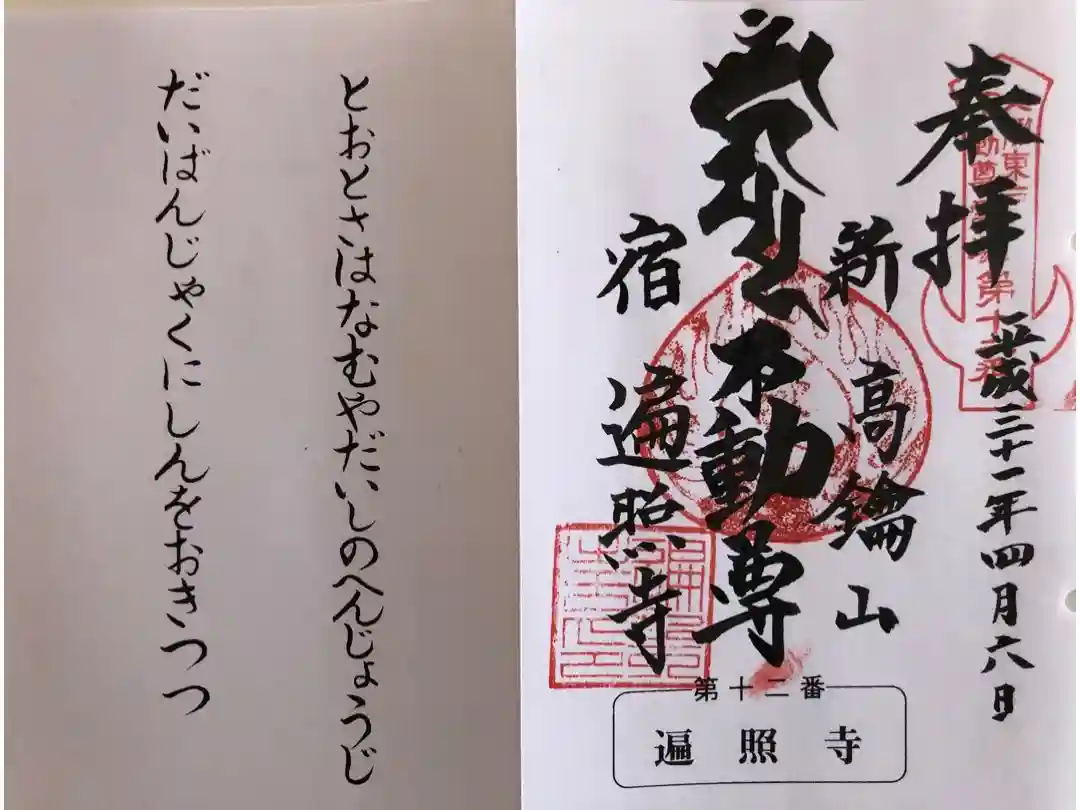 奉拝
平成三十一年四月六日
新高鑰山
不動尊
宿遍照寺
第十二番
遍照寺
とおとさはなむやだいしのへんじょうじ
だいばんじゃくにしんをおきつつ